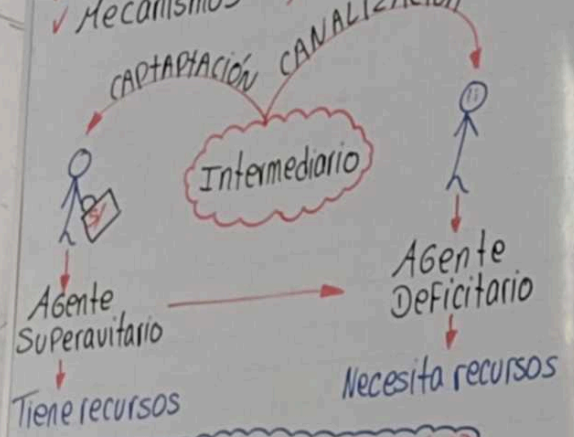 ✓ Mecanismos
CANALIZACIÓN
CAPTAPTACIÓN
Intermediario
S/
Agente
Superavitario
Tiene recursos
Agente
Deficitario
Necesita recursos